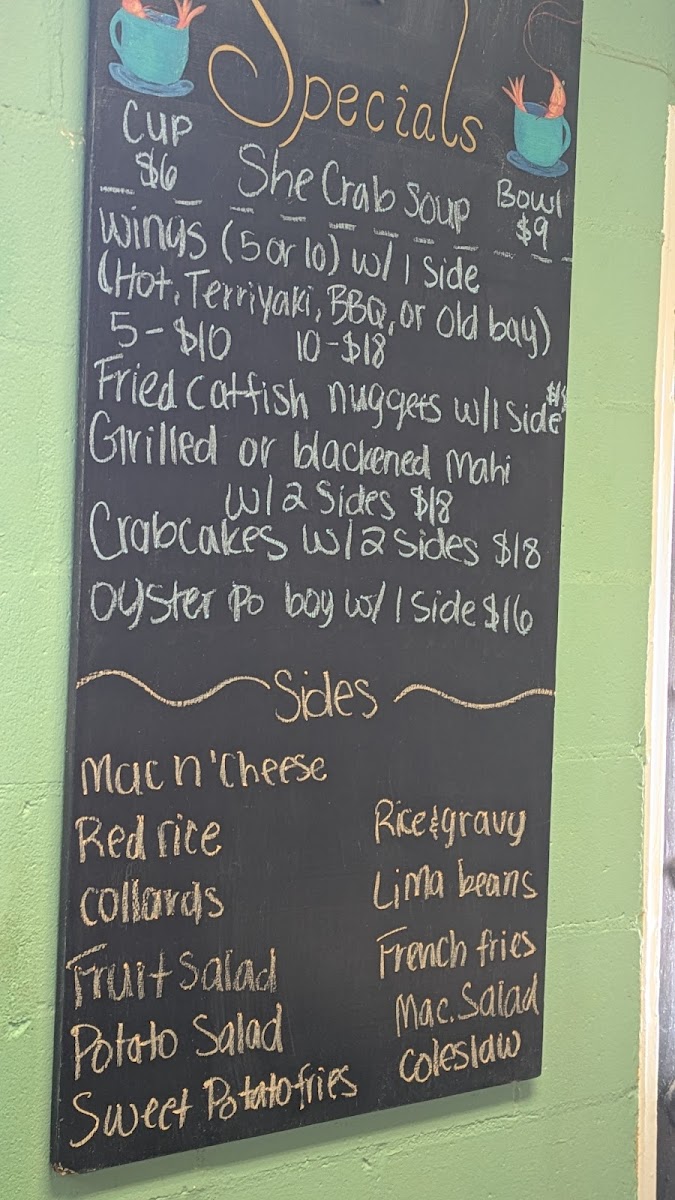 Specials
Cup
$6
She Crab Soup
Bowl
$9
Wings (5 or 10) w/ 1 Side
(Hot, Terriyaki, BBQ, or Old bay)
5-$10 10-$18
Fried catfish nuggets w/1 Side
Grilled or blackened Mahi
w/2 Sides $18
Crabcakes w/2 sides $18
Oyster Po boy w/ 1 Side $16
Sides
Mac n' Cheese
Red rice
Collards
Fruit Salad
Potato Salad
Sweet Potato fries
Rice & gravy
Lima beans
French fries
Mac. Salad
Coleslaw